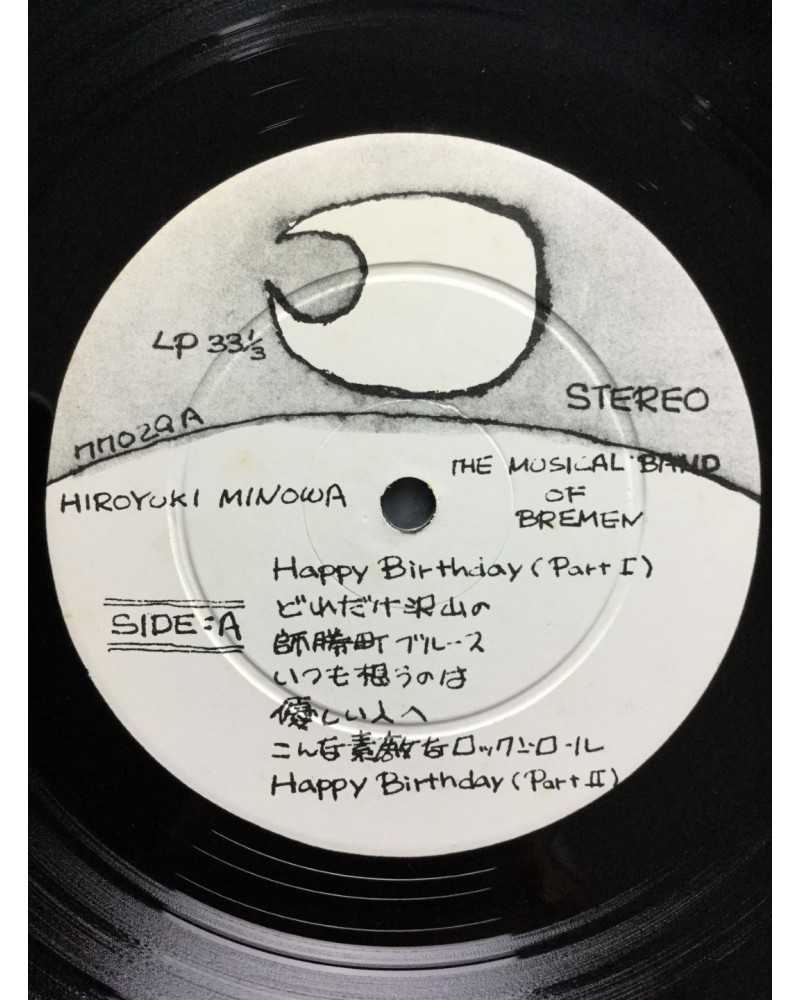 LP 33⅓
STEREO
77029A
HIROYUKI MINOWA
THE MUSICAL BAND
OF
BREMEN
SIDE:A
Happy Birthday (Part I)
どれだけ沢山の
師勝町ブルース
いつも想うのは
優しい人へ
こんな素敵なロックンロール
Happy Birthday (Part II)